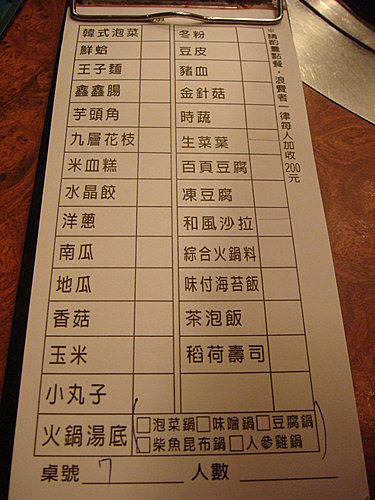 韓式泡菜 冬粉
鮮蛤 豆皮
王子麵 豬血
鑫鑫腸 金針菇
芋頭角 時蔬
九層花枝 生菜葉
米血糕 百頁豆腐
水晶餃 凍豆腐
洋蔥 和風沙拉
南瓜 綜合火鍋料
地瓜 味付海苔飯
香菇 茶泡飯
玉米 稻荷壽司
小丸子
火鍋湯底 (□泡菜鍋□味噌鍋□豆腐鍋
□柴魚昆布鍋□人參雞鍋)
桌號 7 人數
※請酌量點餐，浪費者一律每人加收200元